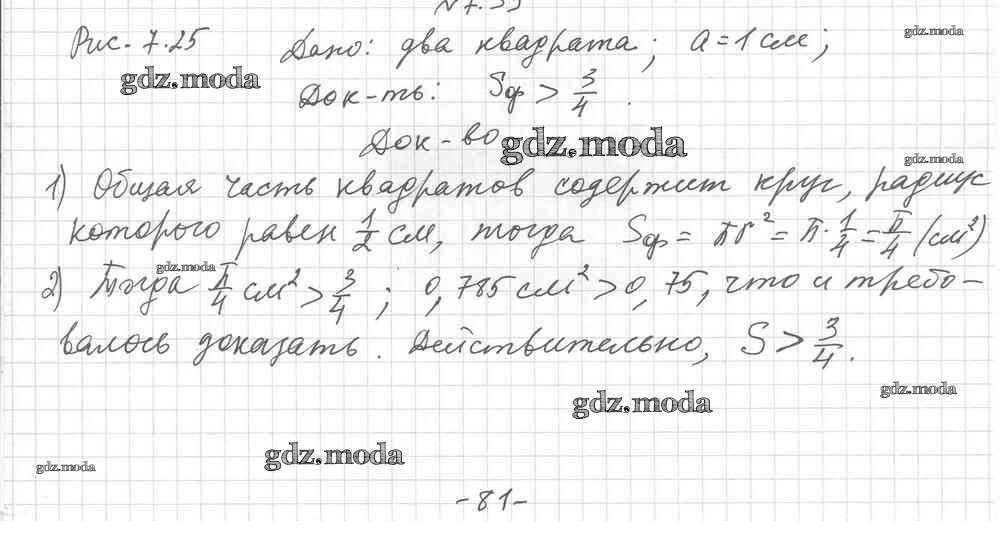 Рис. 7.25 Дано: два квадрата; a = 1 см; gdz.moda
gdz.moda Док-ть: Sф > 3/4.
Док-во gdz.moda
gdz.moda
1) Общая часть квадратов содержит круг, радиус
которого равен 1/2 см, тогда Sф = πr² = π·1/4 = π/4 (см²)
gdz.moda
2) Тогда π/4 см² > 3/4; 0,785 см² > 0,75, что и требо-
валось доказать. Действительно, S > 3/4.
gdz.moda
gdz.moda
gdz.moda
gdz.moda
-81-